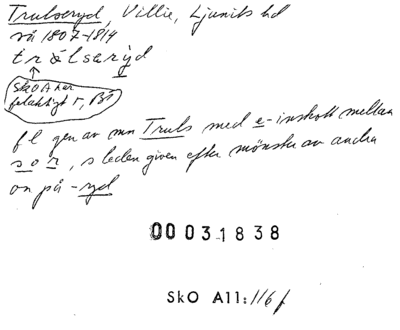 Trulseryd, Villie, Ljunits hd
rå 1807-1814
trølseryd
SkOA har
felaktigt r, Bs
fl gen av mn Truls med e-inskott mellan
s o r, s leden given efter mönster av andra
on på -ryd
00031838
SkO A11:116 f